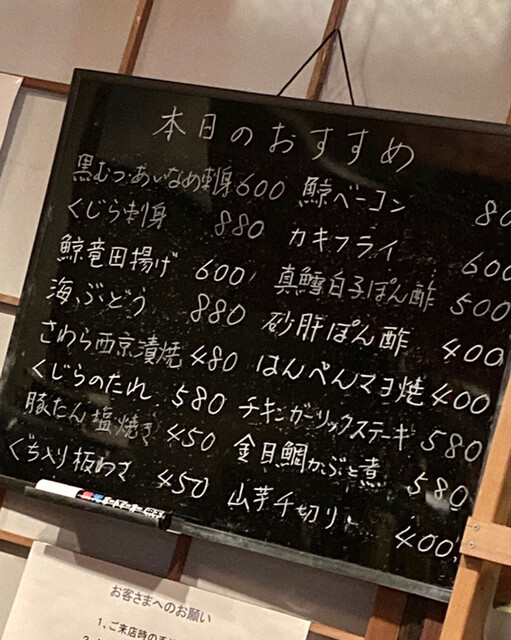 本日のおすすめ
黒むつ・あいなめ刺身 600
くじら刺身 880
鯨竜田揚げ 600
海ぶどう 880
さわら西京漬焼 480
くじらのたれ 580
豚たん塩焼き 450
板わさ 450
鯨ベーコン 80
カキフライ 600
真鱈白子ぽん酢 500
砂肝ぽん酢 400
はんぺんマヨ焼 400
チキンガーリックステーキ 580
金目鯛かぶと煮 580
山芋千切り 400
お客さまへのお願い
1、ご来店時の